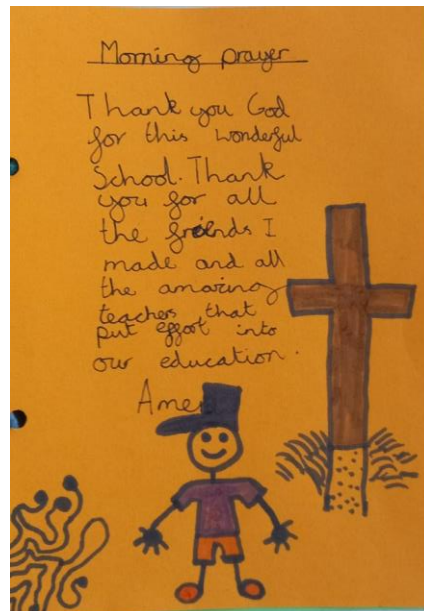 Morning prayer
Thank you God
for this wonderful
School. Thank
you for all
the friends I
made and all
the amazing
teachers that
put effort into
our education.
Amen